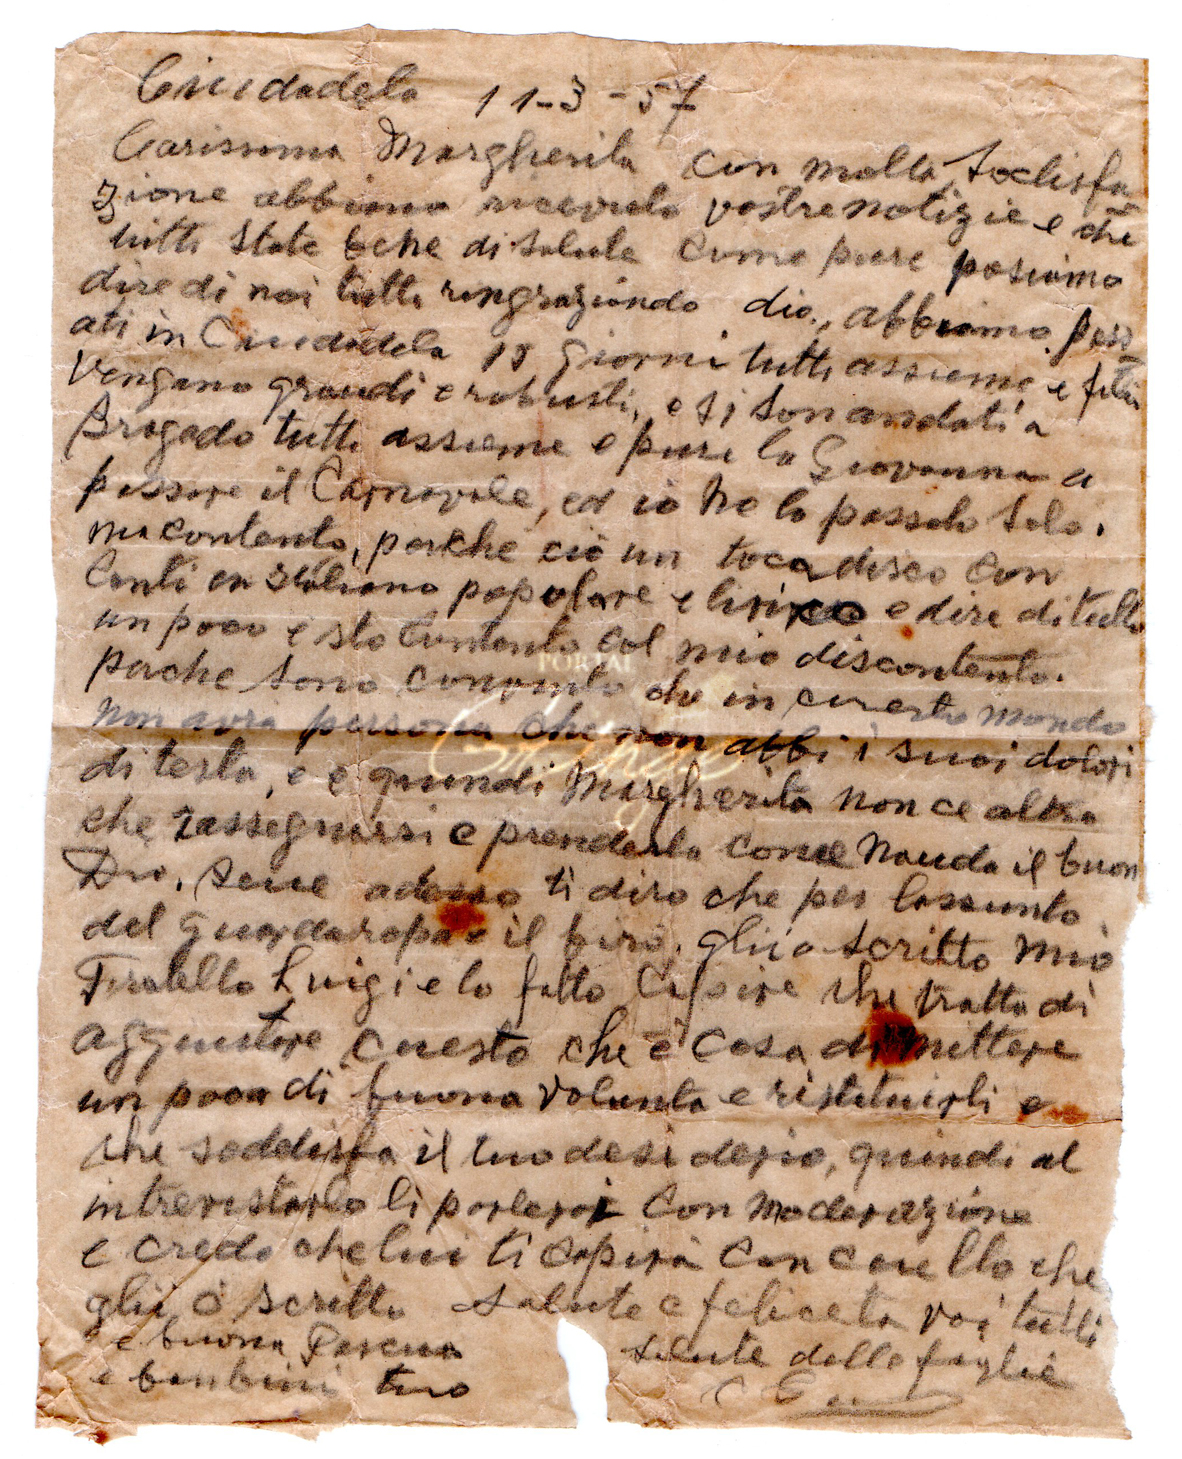 Ciudadela 11-3-57
Carissima Margherita con molta Sodisfa
zione abbiamo ricevuto vostre notizie e che
tutti state bene di Salute come pure posiamo
dire di noi tutti ringraziando dio, abbiamo pass
ati in Ciudadela 15 giorni tutti assieme e
Vengano grandi e robusti, e si son andati a
Bragado tutti assieme e pure la Giovanna a
passare il Carnovale, ed io ne lo passato Solo.
ma contento, perche ciò un tocadisco con
Canti in Italiano popolare e e dire di tutto
un poco e sto contento col mio discontento.
perche sono convinto che in cuesto mondo
non avra persona che non abbi i suoi dolori
di testa, e e quindi Margherita non ce altra
che rassegnarsi e prenderla come Manda il buon
Dio, bene adesso ti diro che per lassunto
del Guardaropa e il biro, gli io scritto mio
Fratello Luigi e lo fatto Capire che tratta di
aggiustare cuesto che è cosa di mettere
un poco di buona volunta e ristituirli e
che soddisfa il tuo desiderio, quindi al
intrevistarlo li parlerai con moderazione
e credo che lui ti capirà con cuello che
gli ò scritto Salute e feliceta voi tutti
e buona Pascua Salute dalla faglie
e banbini tuo